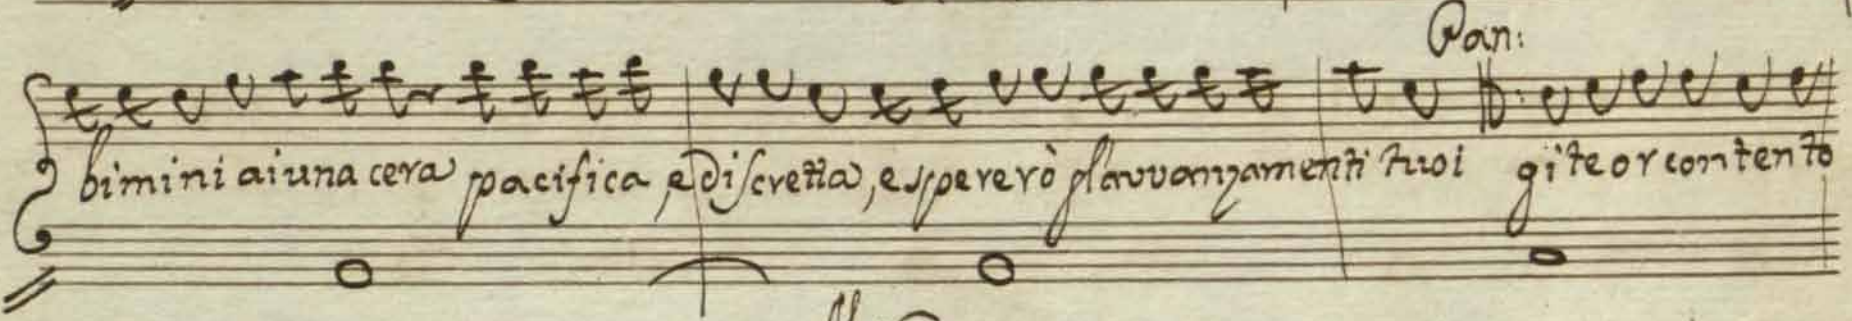 Pan:
bimini ai una cera pacifica, e discretta, e spererò gl'avvanzamenti tuoi gite or contento